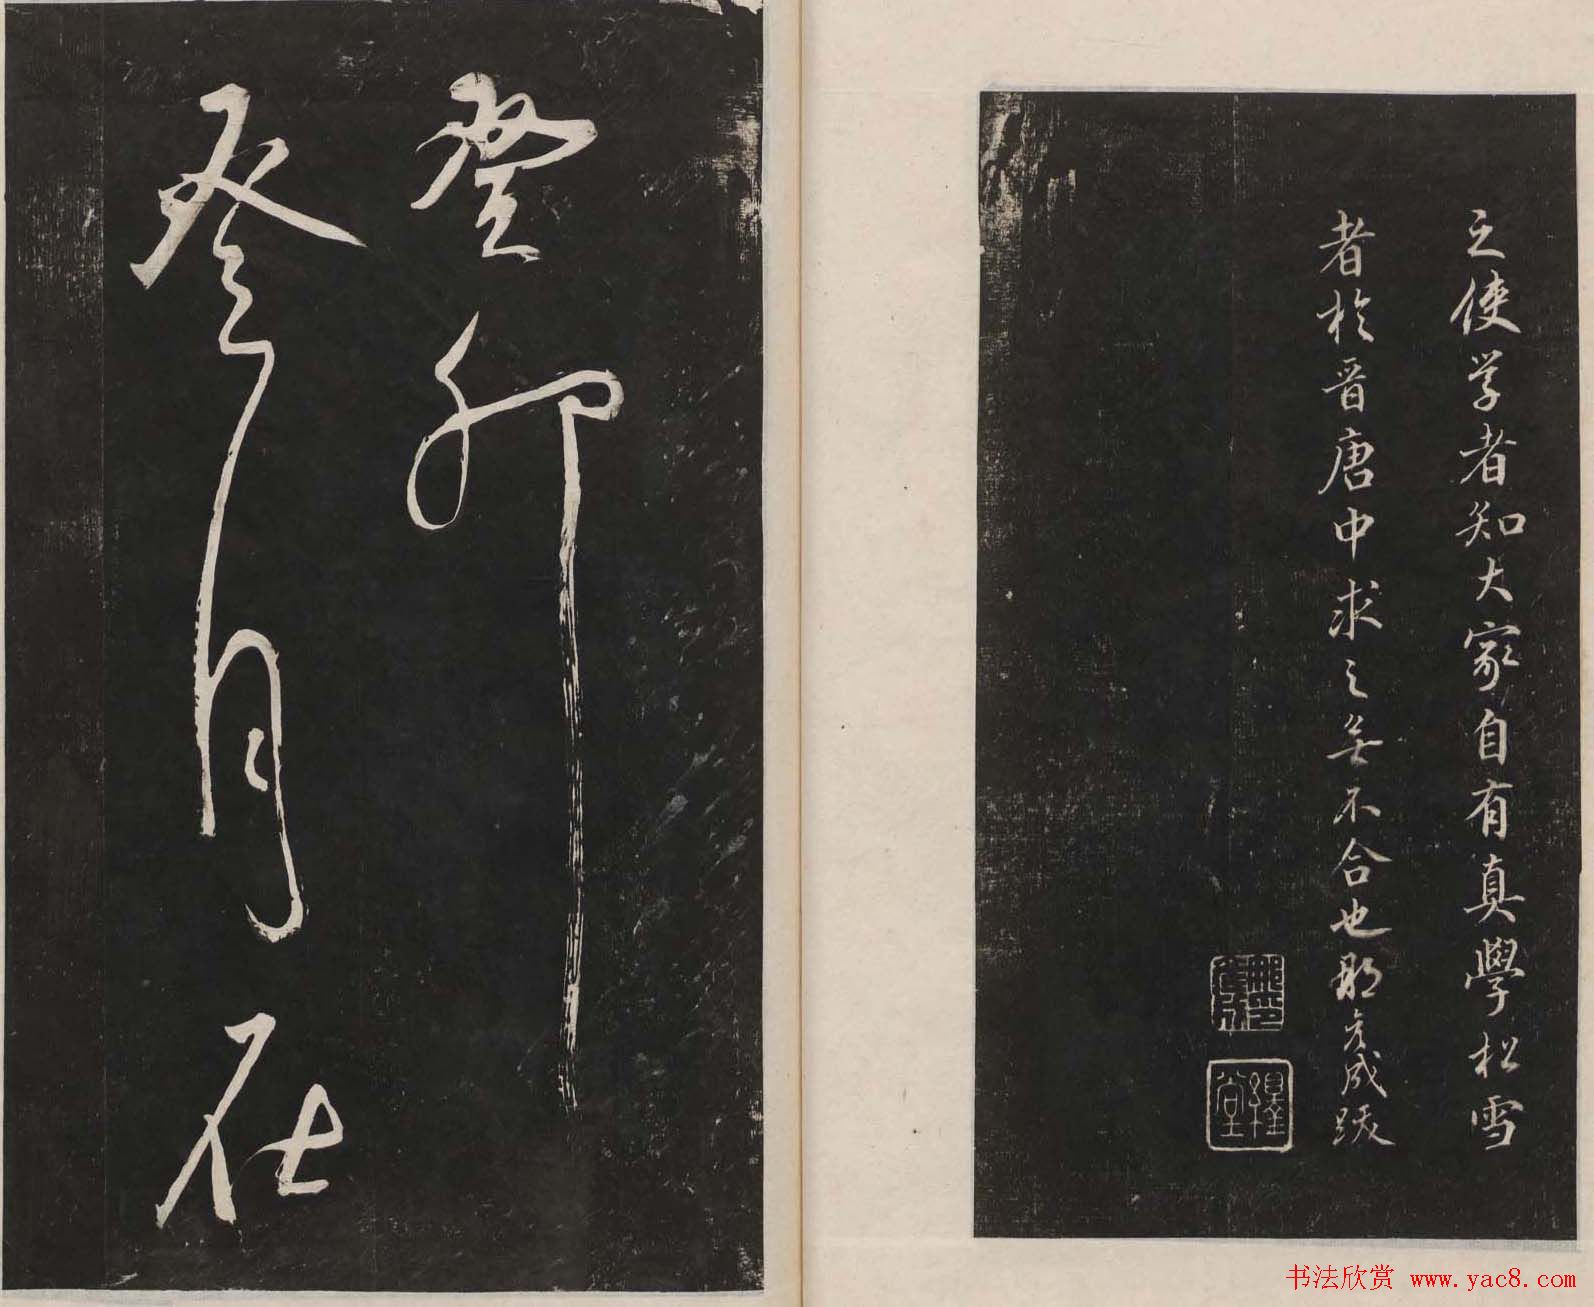 之使学者知大家自有真學松雪
者於晋唐中求之無不合也邢彦成跋
癸卯
冬月在
书法欣赏 www.yac8.com